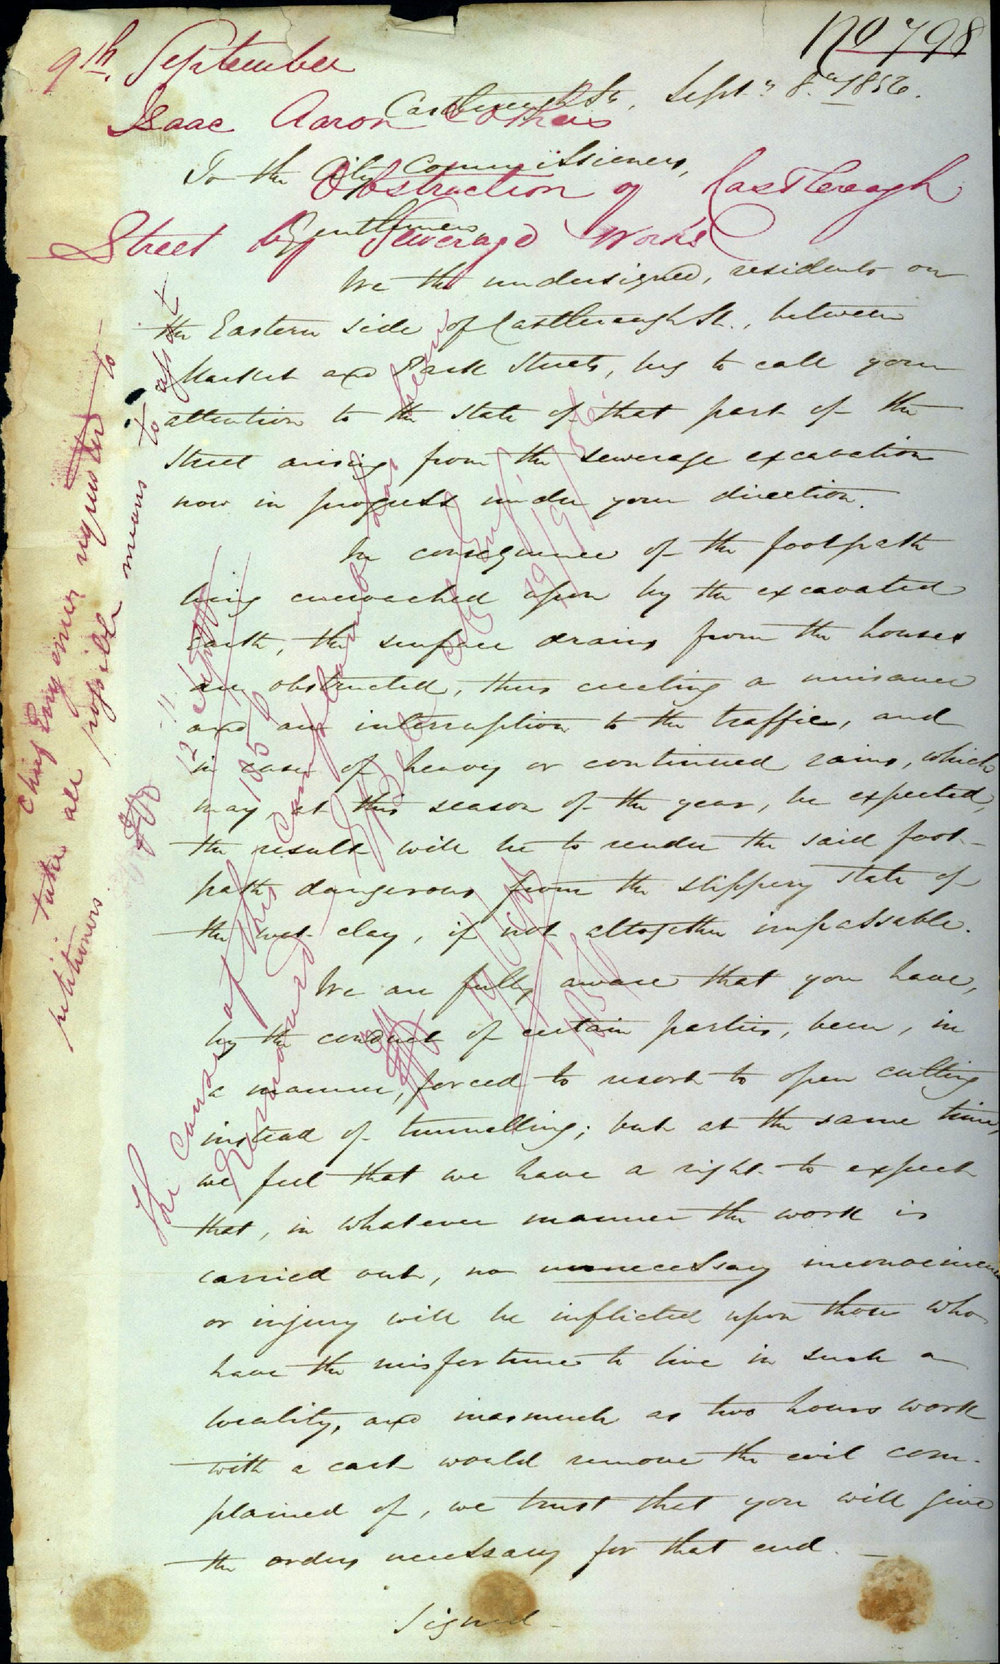 No 798
9th September
Isaac Aaron & Others
Obstruction of Castlereagh
Street by Sewerage Works
Castlereagh St, Septr 8th 1856.
To the City Commissioners,
Gentlemen
We the undersigned, residents on
the Eastern side of Castlereagh St., between
Market and Park Streets, beg to call your
attention to the state of that part of the
Street arising from the sewerage excavation
now in progress under your direction.
In consequence of the footpath
being encroached upon by the excavated
earth, the surface drains from the houses
are obstructed, thus creating a nuisance
and an interruption to the traffic, and
in case of heavy or continued rains, which
may at this season of the year, be expected,
the result will be to render the said foot-
path dangerous from the slippery state of
the wet clay, if not altogether impassable.
We are fully aware that you have,
by the conduct of certain parties, been, in
a manner, forced to resort to open cutting
instead of tunnelling; but at the same time,
we feel that we have a right to expect
that, in whatever manner the work is
carried out, no unnecessary inconvenience
or injury will be inflicted upon those who
have the misfortune to live in such a
locality, and inasmuch as two hours work
with a cart would remove the evil com-
plained of, we trust that you will give
the orders necessary for that end. —
Signed
City Engineer requested to
take all possible means to
petitioners
12 Septr
1856
The cause of this complaint has been
removed
City
19/9/56